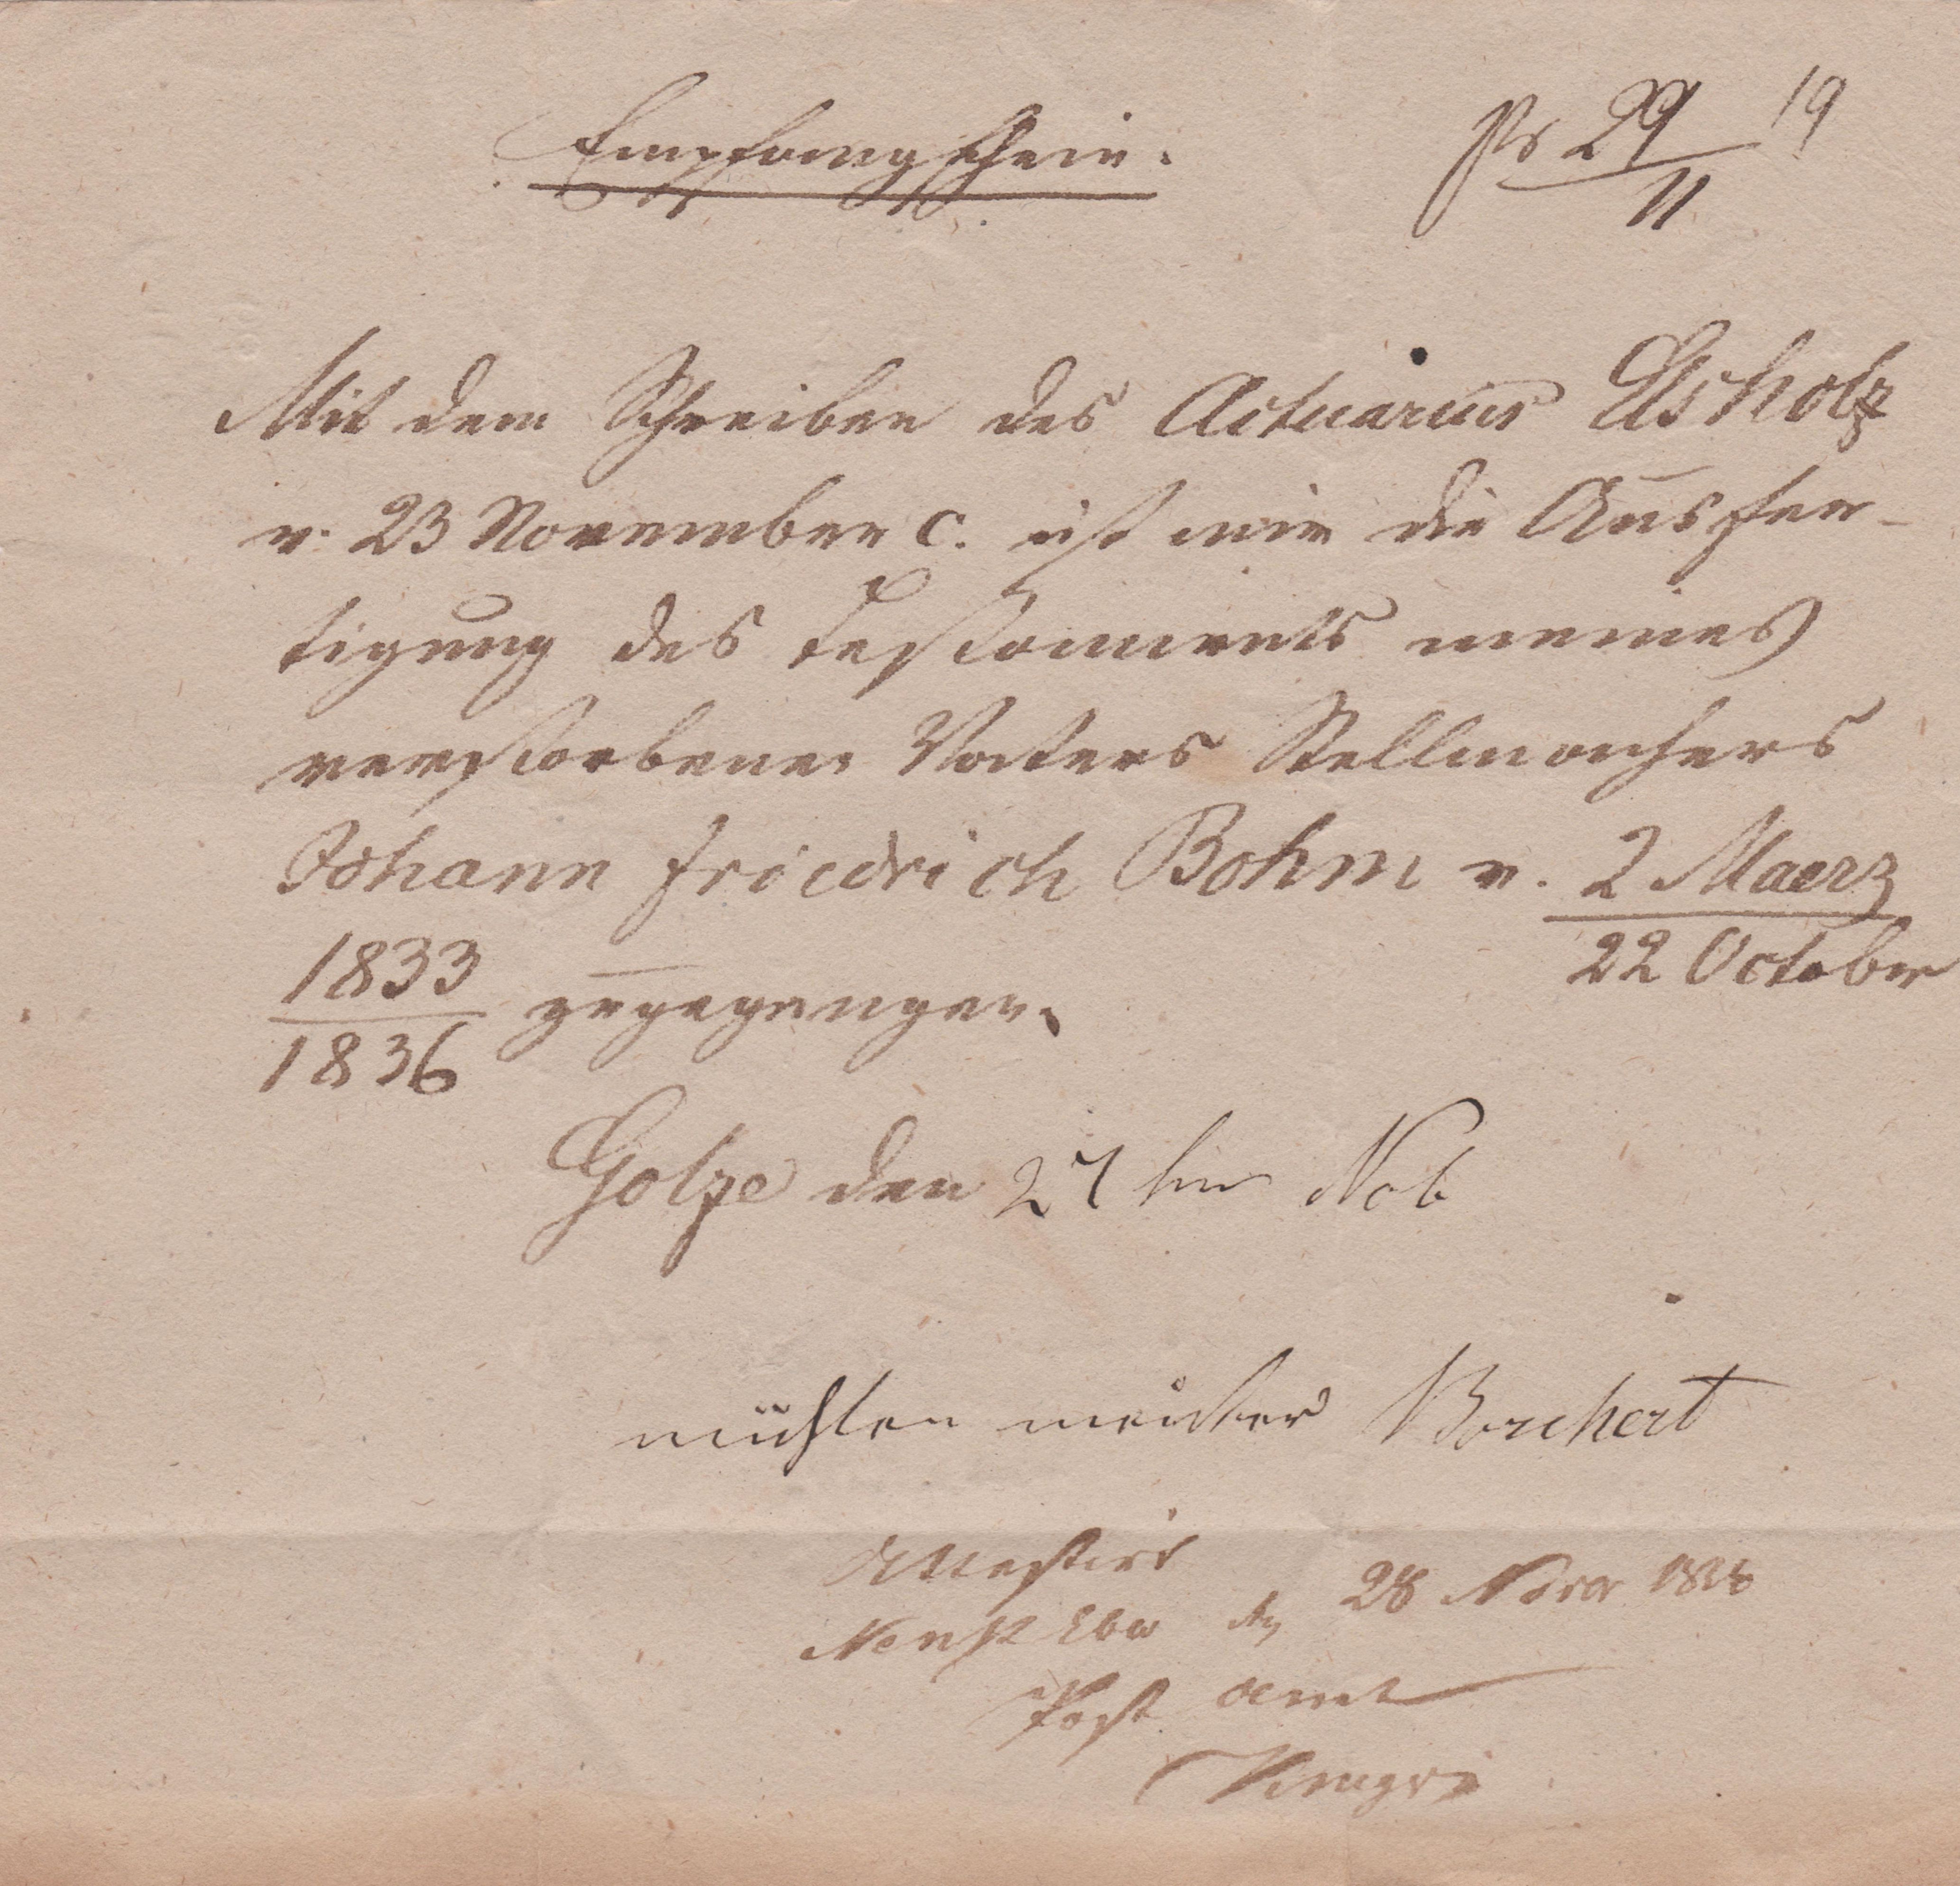 Empfangschein.
pr 29/11 19
Mit dem Schreiben des Actuarius Elsholz
v. 23 November c. ist mir die Ausfer-
tigung des Testaments meines
verstorbenen Vaters Stellmachers
Johann Friedrich Bohm v. 2 Maerz
22 October
1833
1836 zugegangen.
Golze den 27ten Nob
mühlen meister Borchert
Attestirt
den 28 Novr
Post Amt